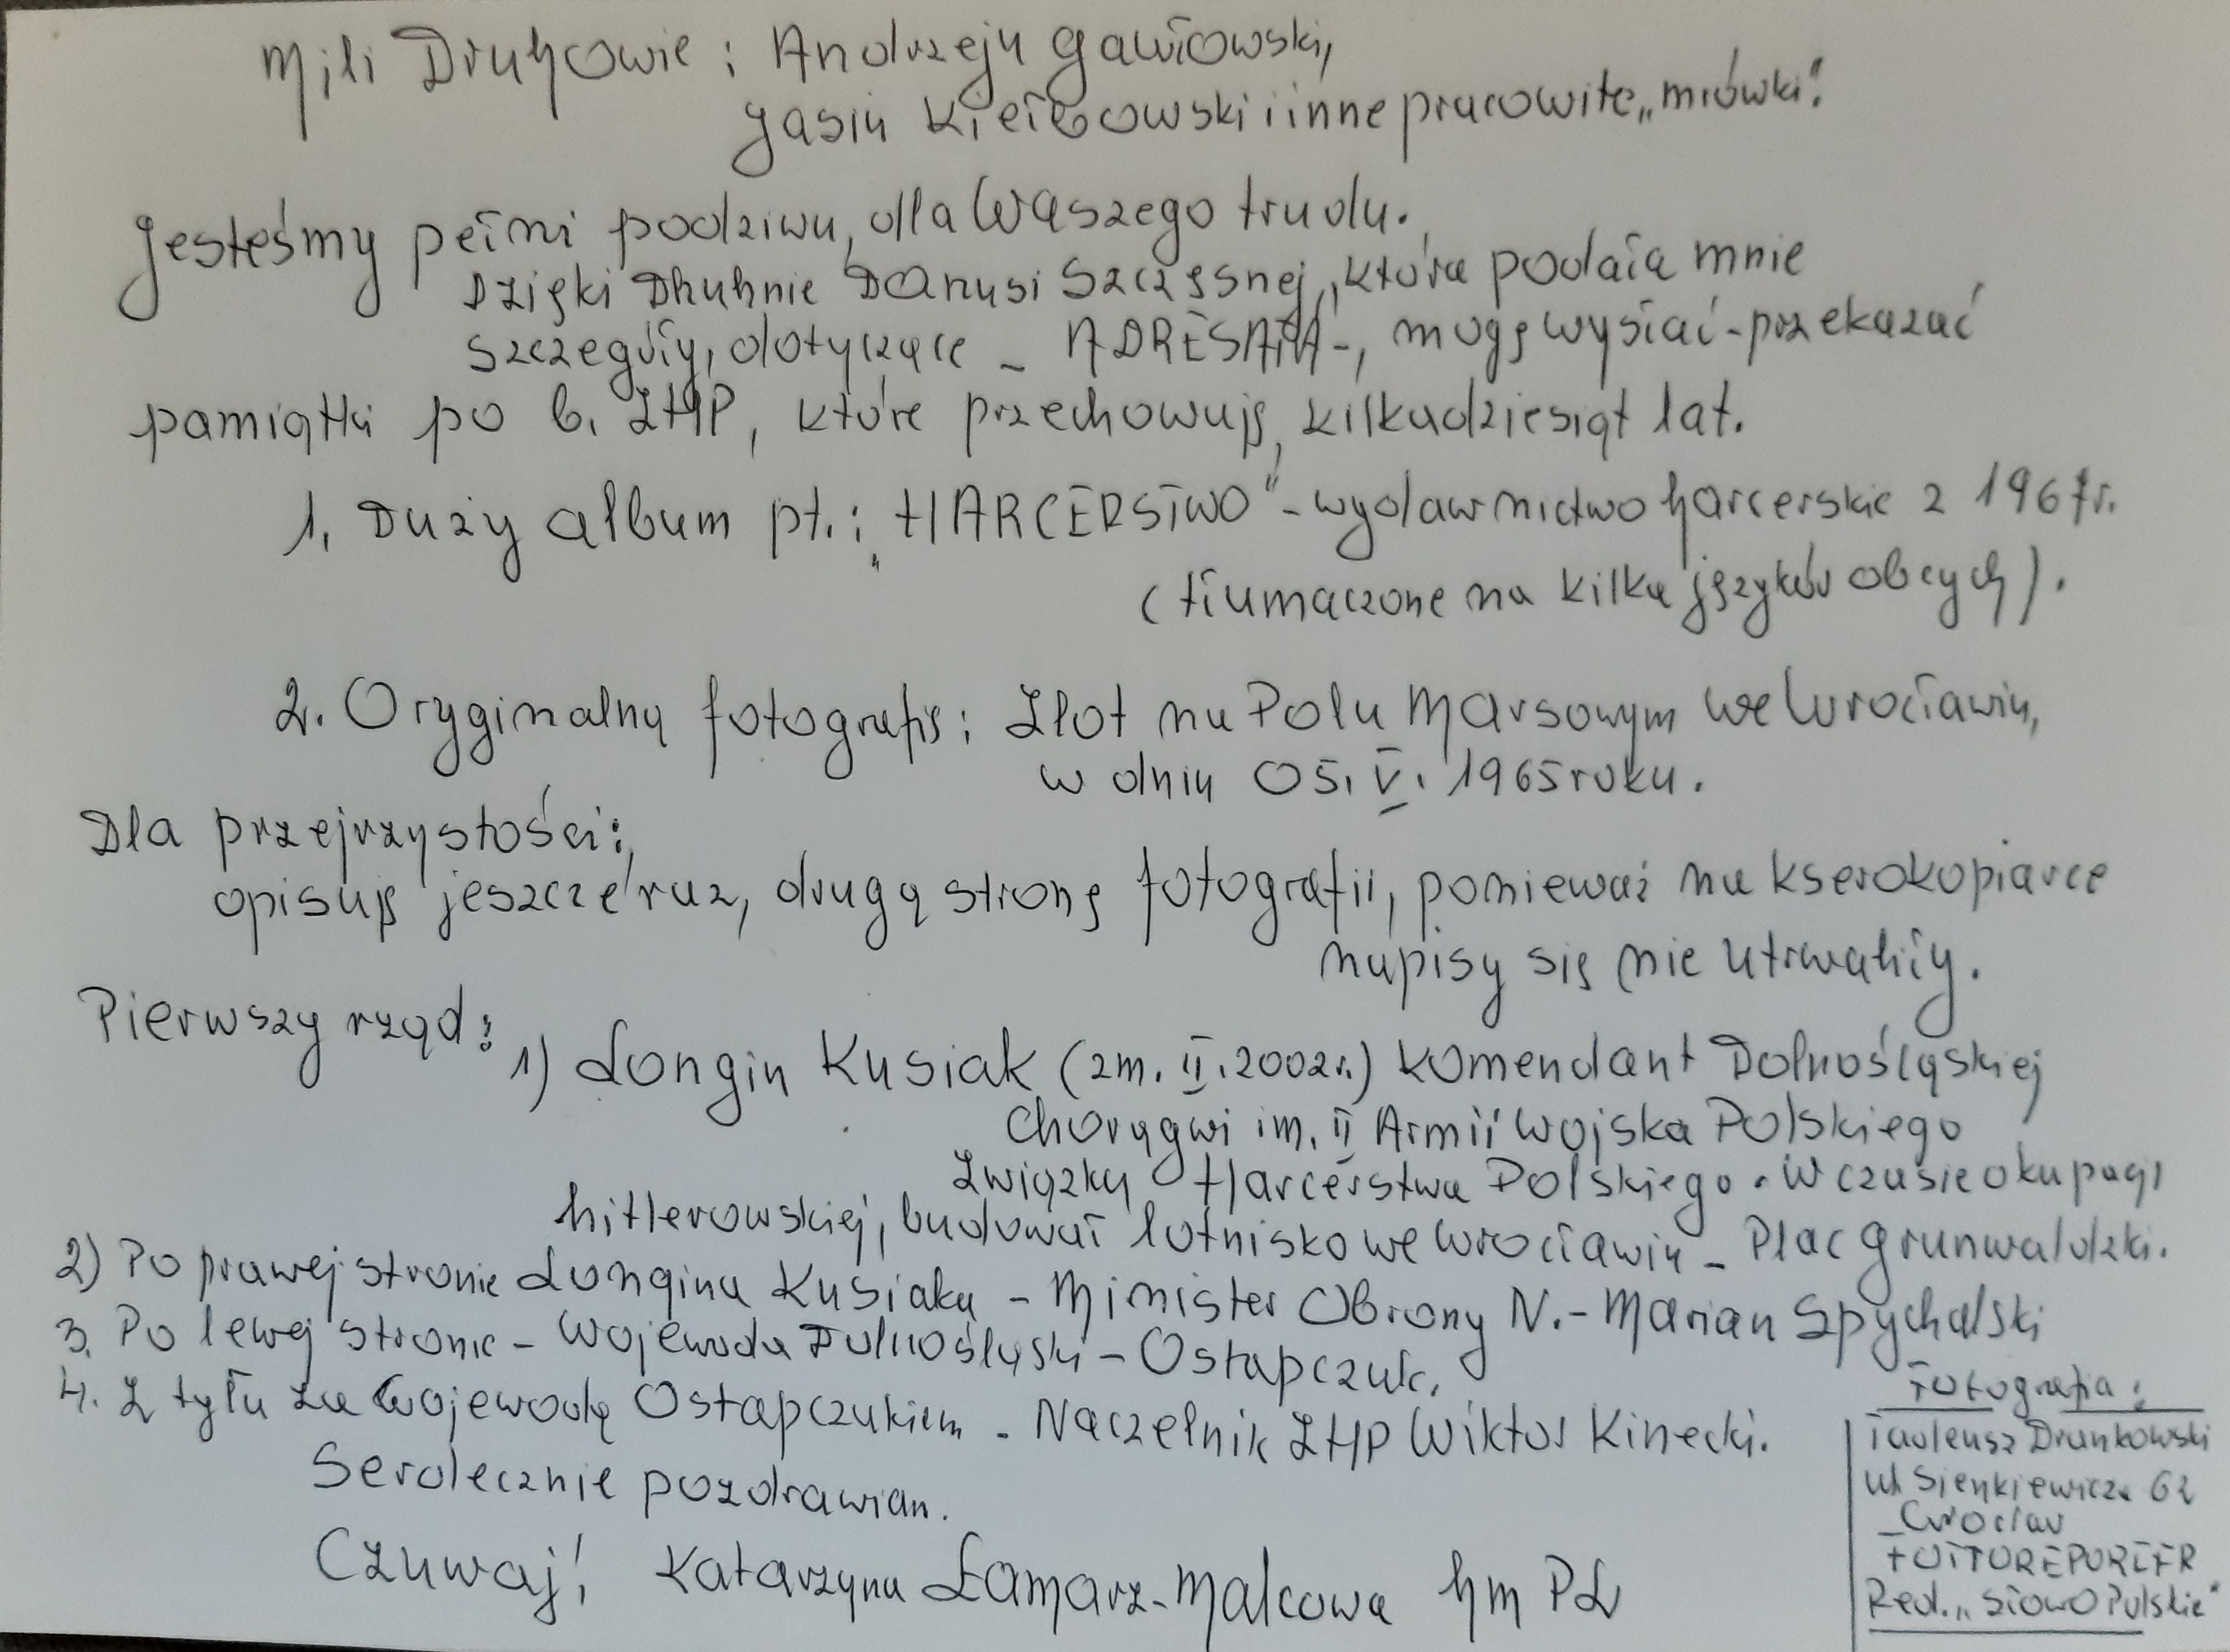 Mili Druhowie: Andrzeju Gawłowski,
Jasiu Kiełbowski i inne pracowite „mrówki".
Jesteśmy pełni podziwu, dla Waszego trudu.
Dzięki Dhuhnie Danusi Szczęsnej, która podała mnie
szczegóły, dotyczące - ADRESATA -, mogę wysłać - przekazać
pamiątki po b. ZHP, które przechowuję, kilkadziesiąt lat.
1. Duży album pt.: „HARCERSTWO" - wydawnictwo harcerskie z 1967r.
(tłumaczone na kilka języków obcych).
2. Oryginalną fotografię: Zlot na Polu Marsowym we Wrocławiu,
w dniu 05. V. 1965 roku.
Dla przejrzystości:
opisuję jeszcze raz, drugą stronę fotografii, ponieważ na kserokopiarce
napisy się nie utrwaliły.
Pierwszy rząd:
1) Longin Kusiak (zm. II. 2002r.) Komendant Dolnośląskiej
Chorągwi im. II Armii Wojska Polskiego
Związku Harcerstwa Polskiego. W czasie okupacji
hitlerowskiej, budował lotnisko we Wrocławiu - Plac Grunwaldzki.
2) Po prawej stronie Longina Kusiaka - Minister Obrony N. - Marian Spychalski
3. Po lewej stronie - Wojewoda Dolnośląski - Ostapczuk.
4. Z tyłu za Wojewodą Ostapczukiem - Naczelnik ZHP Wiktor Kinecki.
Serdecznie pozdrawiam.
Czuwaj! Katarzyna Łamarz-Malcowa hm PL
Fotografia:
Tadeusz Drankowski
ul. Sienkiewicza 62
Wrocław
FOTOREPORTER
Red. „Słowo Polskie"